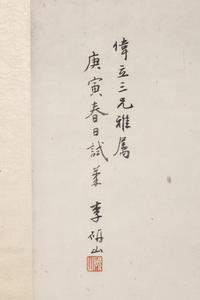 偉立三兄雅屬
庚寅春日試筆 李研山